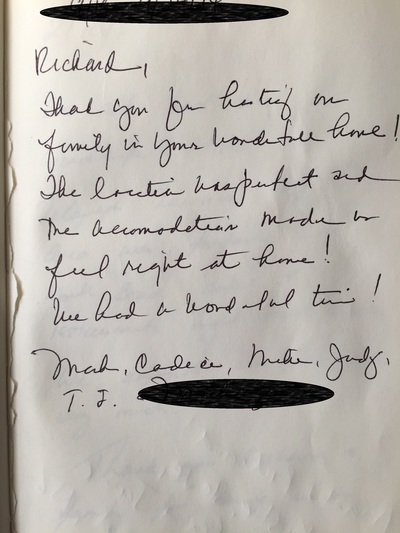 Richard,
Thank you for hosting our
family in your wonderfull home!
The location was perfect and
the accomodations made us
feel right at home!
We had a wonderful time!
Mark, Judy,
T.J.